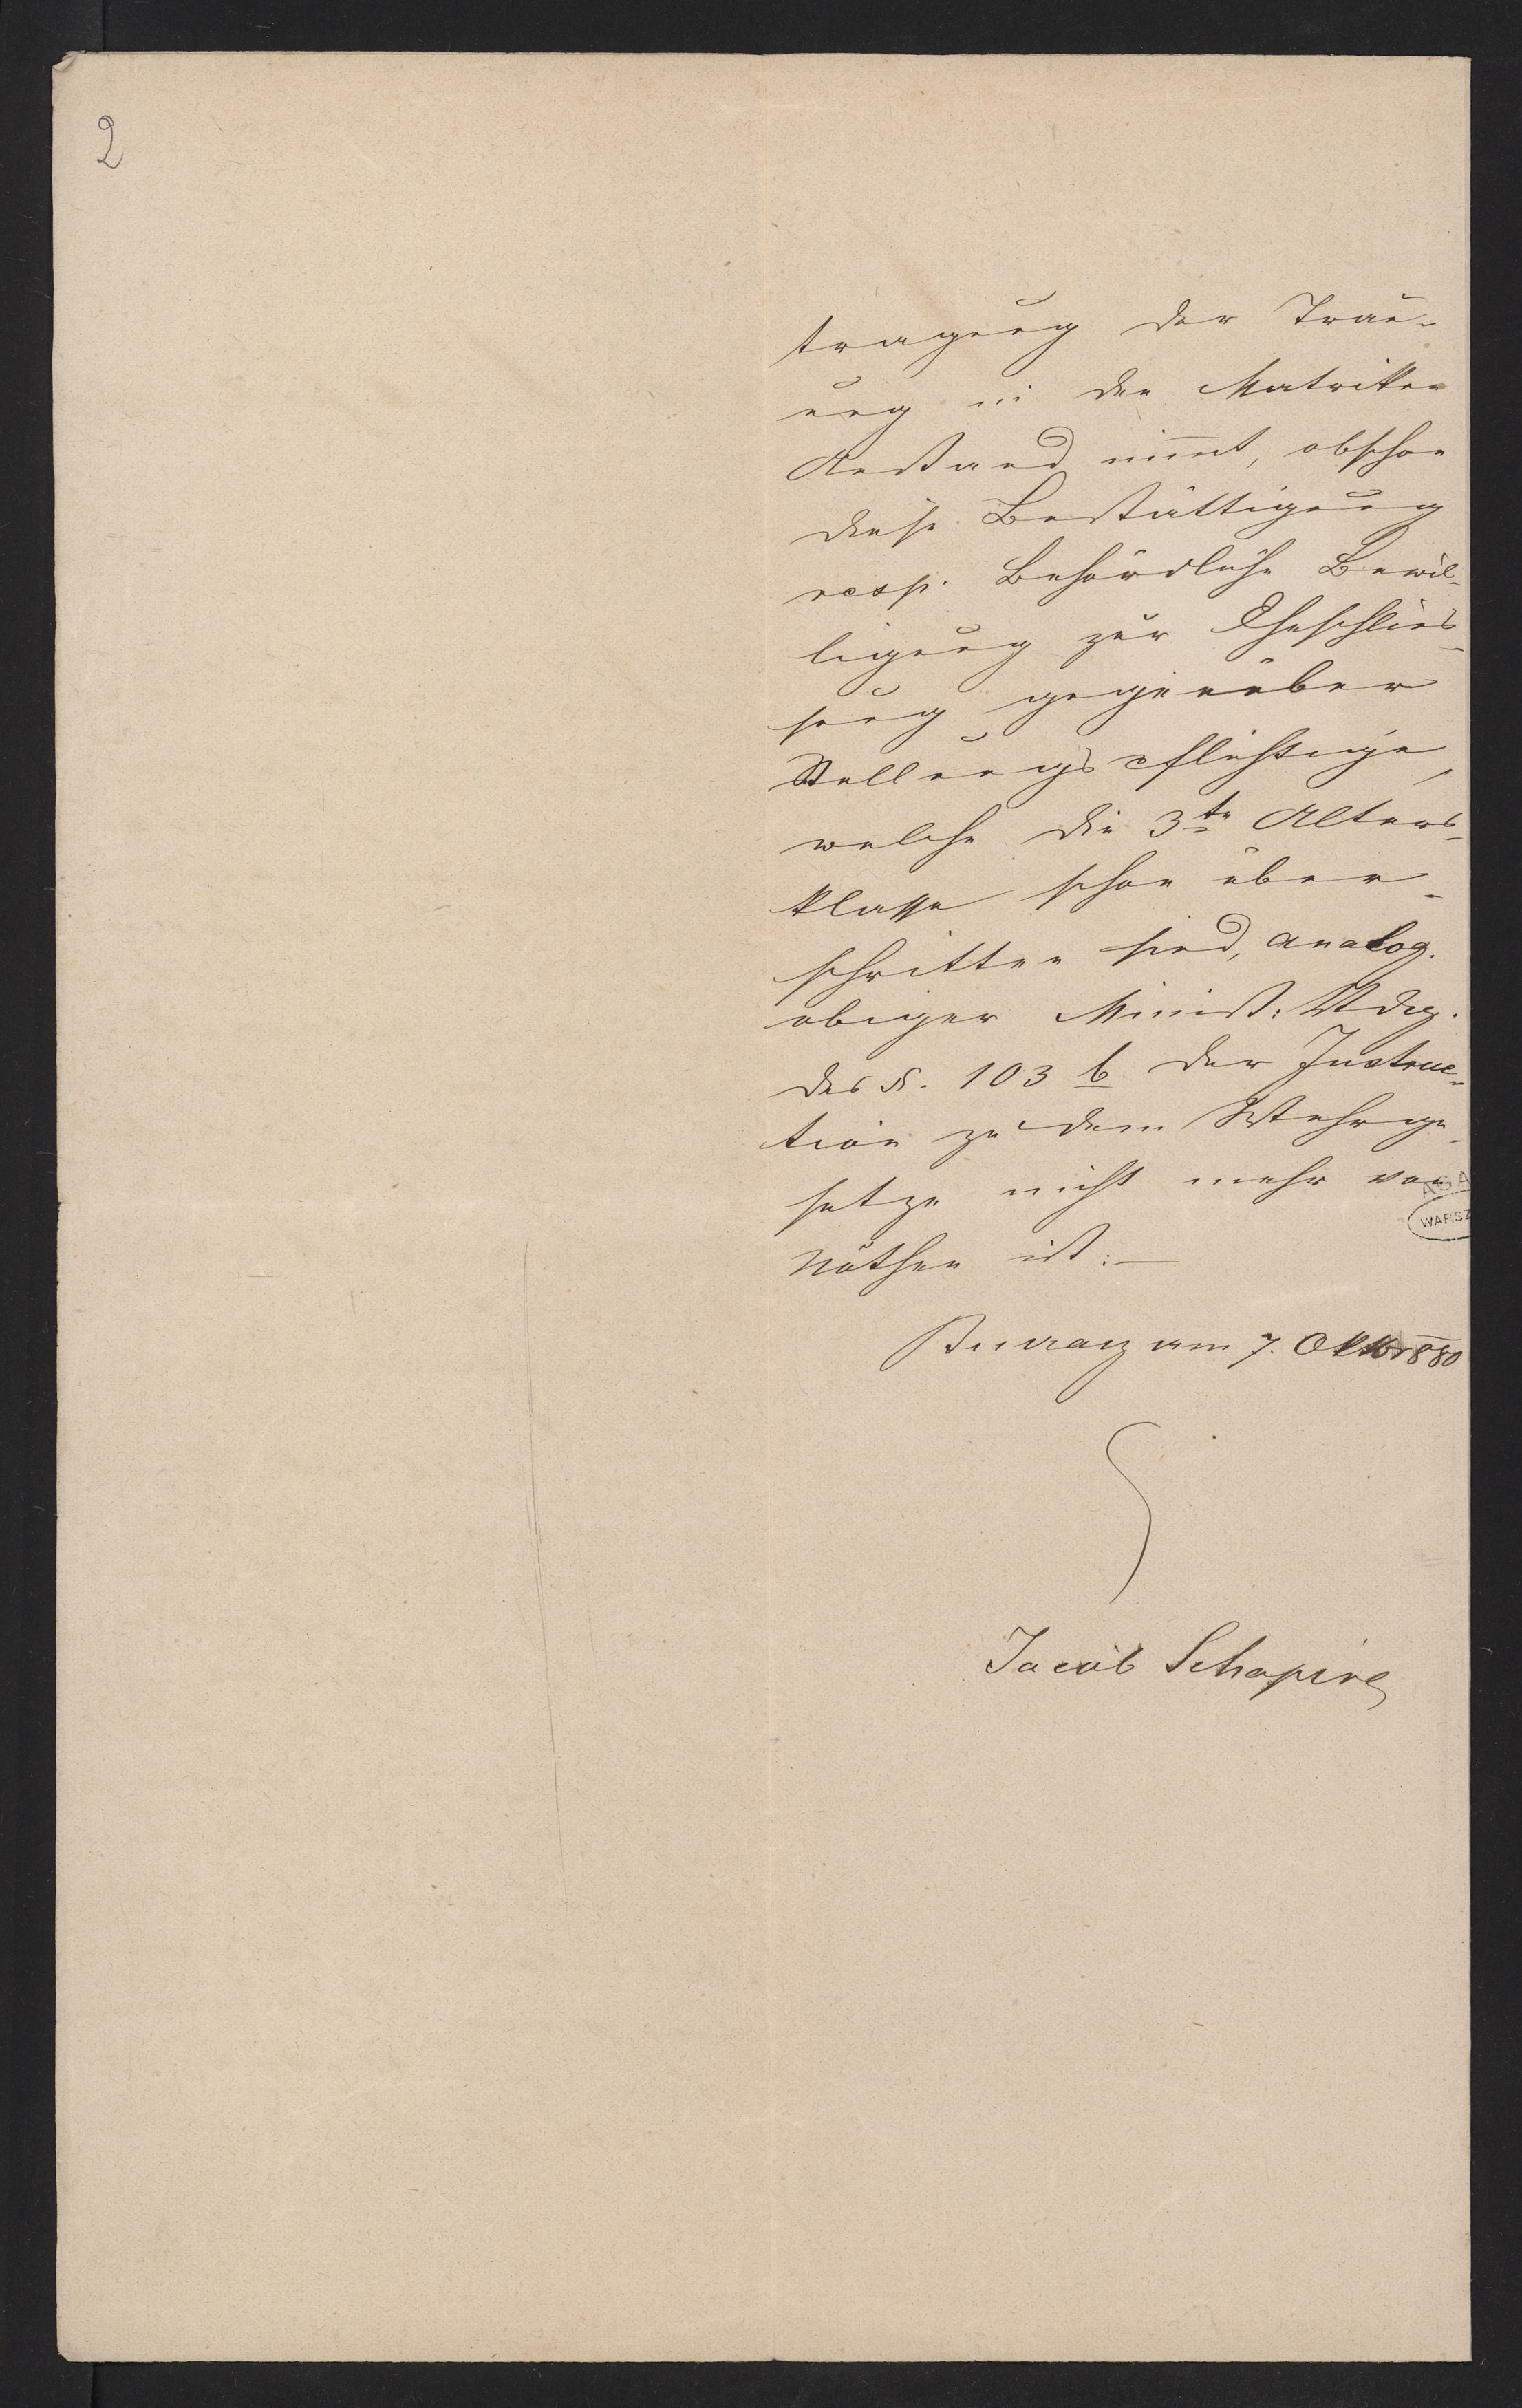 2
tragung der Trau-
ung in den Matriken
Anstand nimmt, obschon
diese Bestättigung
resp. Behördliche Bewil-
ligung zur Eheschlies-
sung gegenüber
Stellungspflichtige,
welche die 3te Alters-
klasse schon über-
schritten sind, analog.
obiger Minist: Vdg.
des §. 103 b der Instruc-
tion zu dem Wehrge-
setze nicht mehr von
nöthen ist:—
AGA
WARSZ
am 7. Oktb 1880
Jacob Schapira